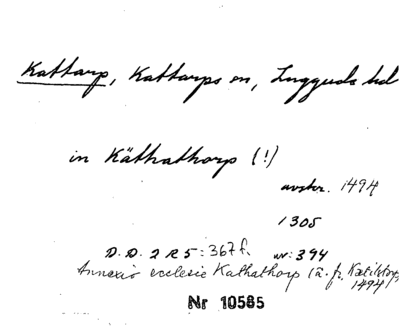 Kattarp, Kattarps sn, Luggude hd
in Käthathorp (!)
avskr. 1494
1305
D.D. 2 R 5: 367 f. nr: 394
Annexio ecclesie Kathathorp (ä. fr. Kætilstorp,
1494)
Nr 10585